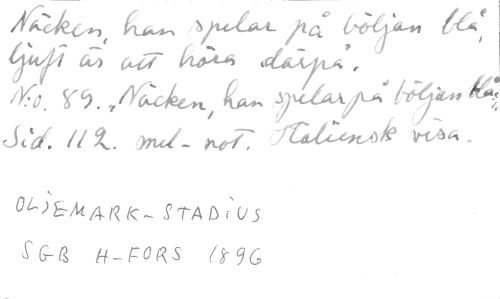 Näcken, han spelar på böljan blå,
ljuft är att höra därpå.
N:o. 89. „Näcken, han spelar på böljan blå".
Sid. 112. mel-not. Italiensk visa.
OLJEMARK-STADIUS
SGB H-FORS 1896